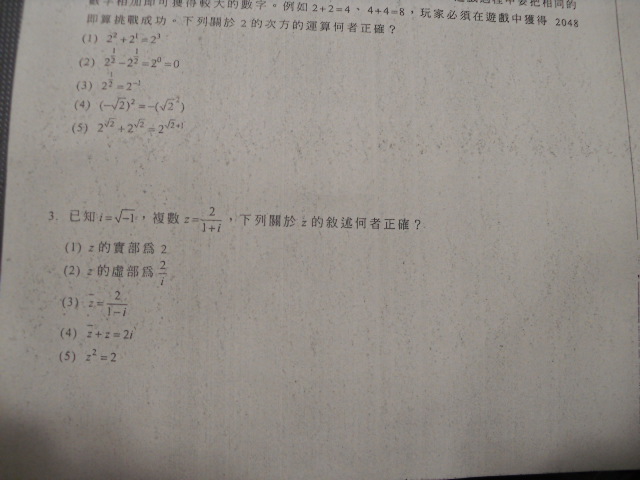 數字相加即可獲得較大的數字。例如 2+2=4、4+4=8,玩家必須在遊戲中獲得 2048
即算挑戰成功。下列關於 2 的次方的運算何者正確?
(1) 2²+2¹=2³
(2) 2^{1/2}−2^{1/2}=2⁰=0
(3) 2^{1/2}=2⁻¹
(4) (−√2)²=−(√2²)
(5) 2^{√2}+2^{√2}=2^{√2+1}
3. 已知 i=√−1,複數 z=2/(1+i),下列關於 z 的敘述何者正確?
(1) z 的實部為 2
(2) z 的虛部為 2/i
(3) z̄=2/(1−i)
(4) z̄+z=2i
(5) z²=2